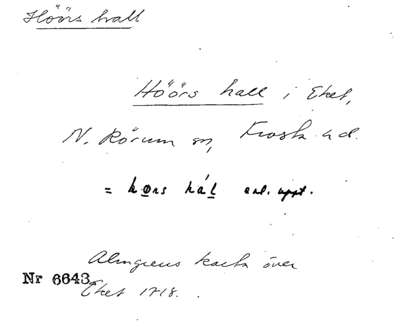 Höörs hall
Höörs hall i Eket,
N. Rörum sn, Frosta hd.
= hørs hál enl. uppt.
Almgrens karta över
Nr 6643
Eket 1718.